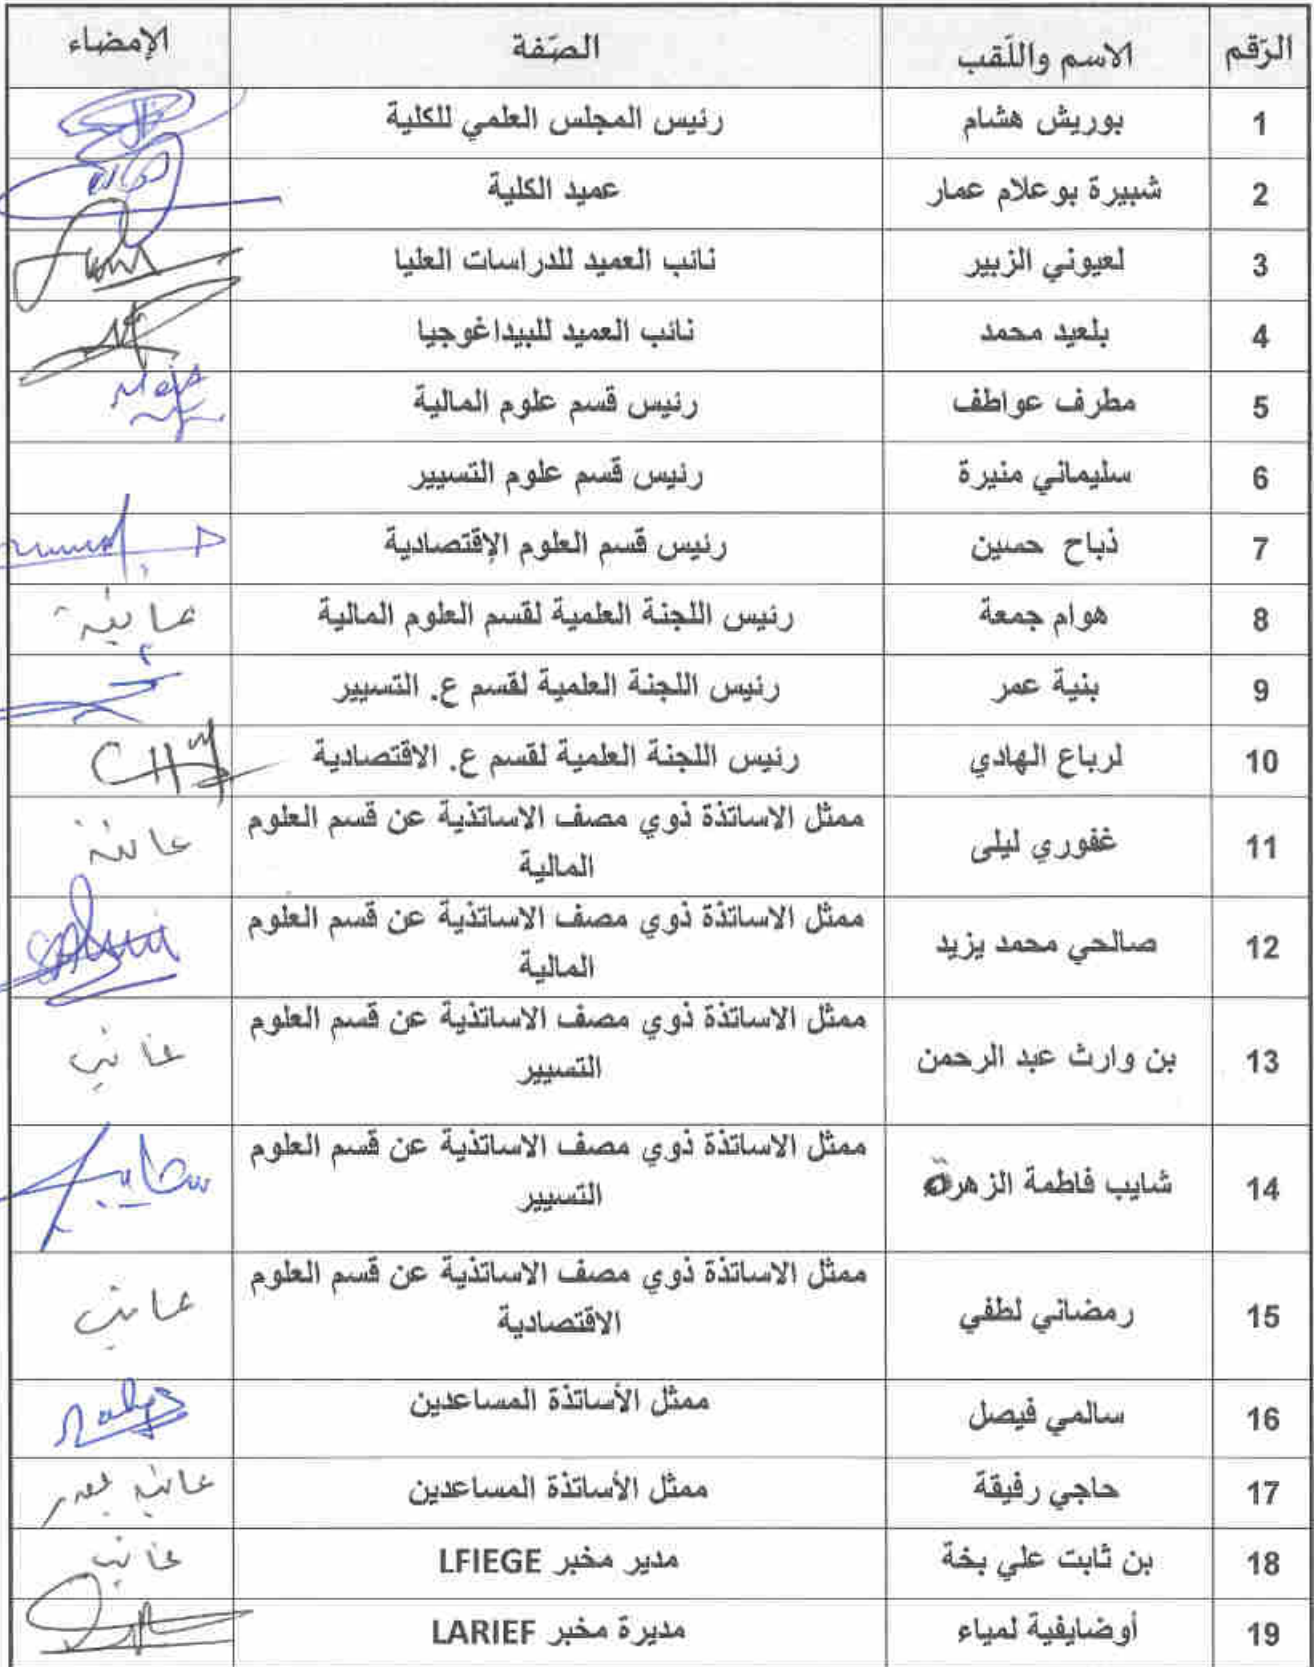 الرّقم الاسم واللّقب الصّفة الإمضاء
1 بوريش هشام رئيس المجلس العلمي للكلية
2 شبيرة بوعلام عمار عميد الكلية
3 لعيوني الزبير نائب العميد للدراسات العليا
4 بلعيد محمد نائب العميد للبيداغوجيا
5 مطرف عواطف رئيس قسم علوم المالية
6 سليماني منيرة رئيس قسم علوم التسيير
7 ذباح حسين رئيس قسم العلوم الإقتصادية
8 هوام جمعة رئيس اللجنة العلمية لقسم العلوم المالية غائبة
9 بنية عمر رئيس اللجنة العلمية لقسم ع. التسيير
10 لرباع الهادي رئيس اللجنة العلمية لقسم ع. الاقتصادية
11 غفوري ليلى ممثل الاساتذة ذوي مصف الاساتذية عن قسم العلوم
المالية غائبة
12 صالحي محمد يزيد ممثل الاساتذة ذوي مصف الاساتذية عن قسم العلوم
المالية
13 بن وارث عبد الرحمن ممثل الاساتذة ذوي مصف الاساتذية عن قسم العلوم
التسيير غائب
14 شايب فاطمة الزهرة ممثل الاساتذة ذوي مصف الاساتذية عن قسم العلوم
التسيير
15 رمضاني لطفي ممثل الاساتذة ذوي مصف الاساتذية عن قسم العلوم
الاقتصادية غائب
16 سالمي فيصل ممثل الأساتذة المساعدين
17 حاجي رفيقة ممثل الأساتذة المساعدين
18 بن ثابت علي بخة مدير مخبر LFIEGE غائب
19 أوضايفية لمياء مديرة مخبر LARIEF